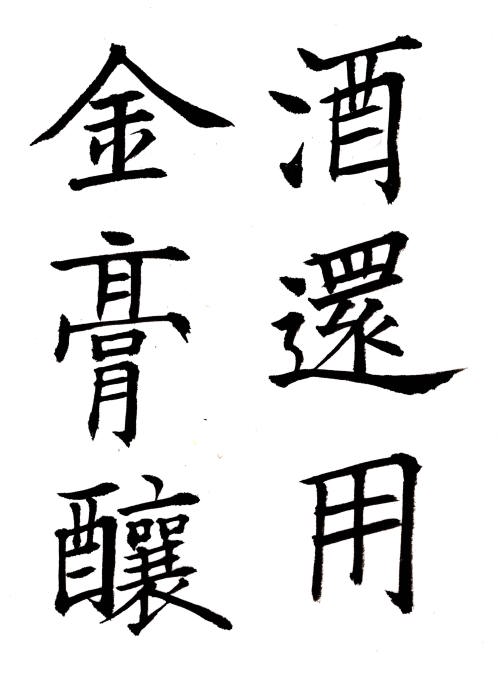 酒還用
金膏釀